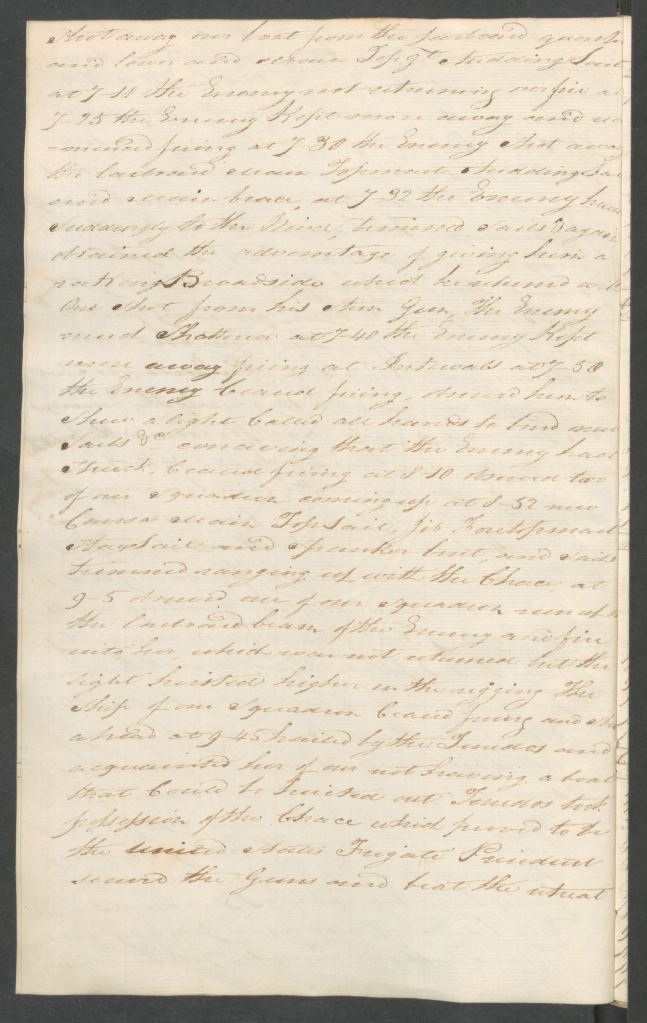 Shot away our boat from the larboard quarter
and lower and main Top Gt Studding Sail
at 7-18 the Enemy not returning our fire at
7-25 the Enemy kept more away and re
-menced firing at 7-30 the Enemy Shot away
the larboard Main Topmast Studding Sail
and Main brace, at 7-32 the Enemy haul
Suddenly to the Wind, trimmed Sails & again
obtained the advantage of giving him a
raking Broadside which he returned with
One Shot from his Stern Gun, the Enemy
much Shattered at 7-40 the Enemy Kept
more away firing at Intervals at 7-50
the Enemy Ceased firing, observed him to
Shew a light Called all hands to bend new
Sails &c conceiving that the Enemy had
Struck, Ceased firing at 8-10 observed two
of our Squadron coming up at 8-52 new
Courses Main TopSail, Jib Foretopmast
StaySail and Spanker bent, and Sails
trimmed ranging up with the Chace, at
9-5 observed one of our Squadron run up
the larboard beam of the Enemy and fire
into her which was not returned but the
light hoisted higher in the rigging The
Ship of our Squadron Ceased firing and
ahead at 9-45 hailed by the Tenedos and
acquainted her of our not having a boat
that Could be hoisted out Tenedos took
possession of the Chace which proved to be
the united States Frigate President
secured the Guns and beat the retreat